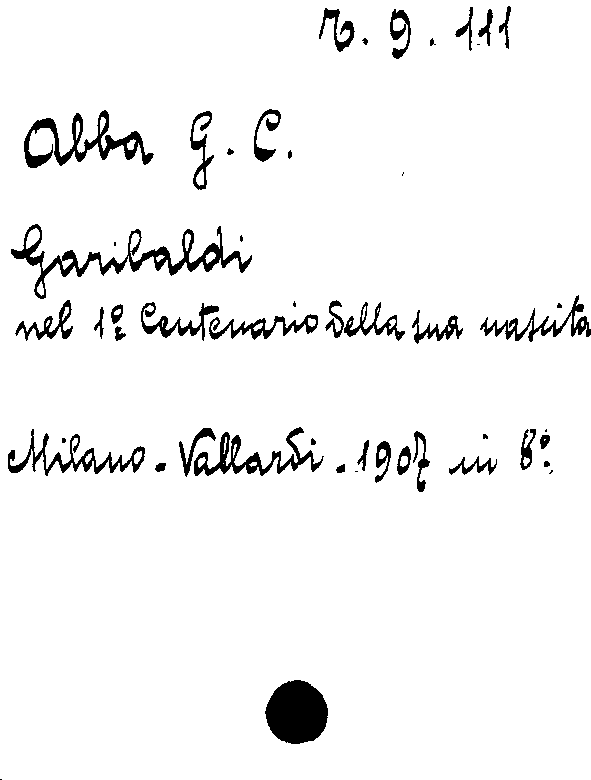 7. 9. 111
Abba G. C.
Garibaldi
nel 1º Centenario della sua nascita
Milano - Vallardi - 1907 in 8º.